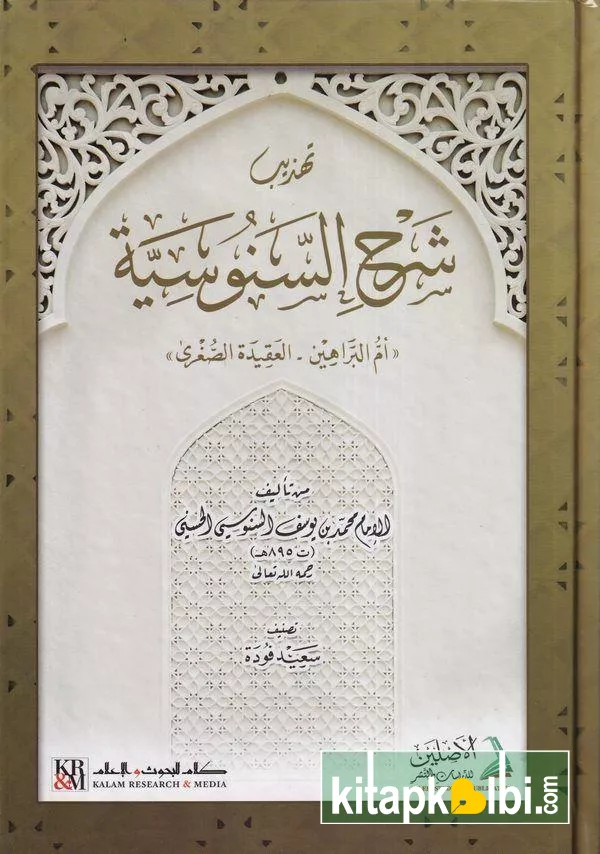 تهذيب
شَرْحِ السَّنُوسِيَّة
«أمُّ البَرَاهِين - العَقِيدَة الصُّغْرىٰ»
من تأليف
الإمام محمد بن يوسف السنوسي الحسني
(ت ٨٩٥هـ)
رحمه الله تعالىٰ
تصنيف
سَعِيْد فُودَة
KR&M
كلام للبحوث والإعلام
KALAM RESEARCH & MEDIA
الأصلين
للدراسات والنشر
kitapkalbi.com